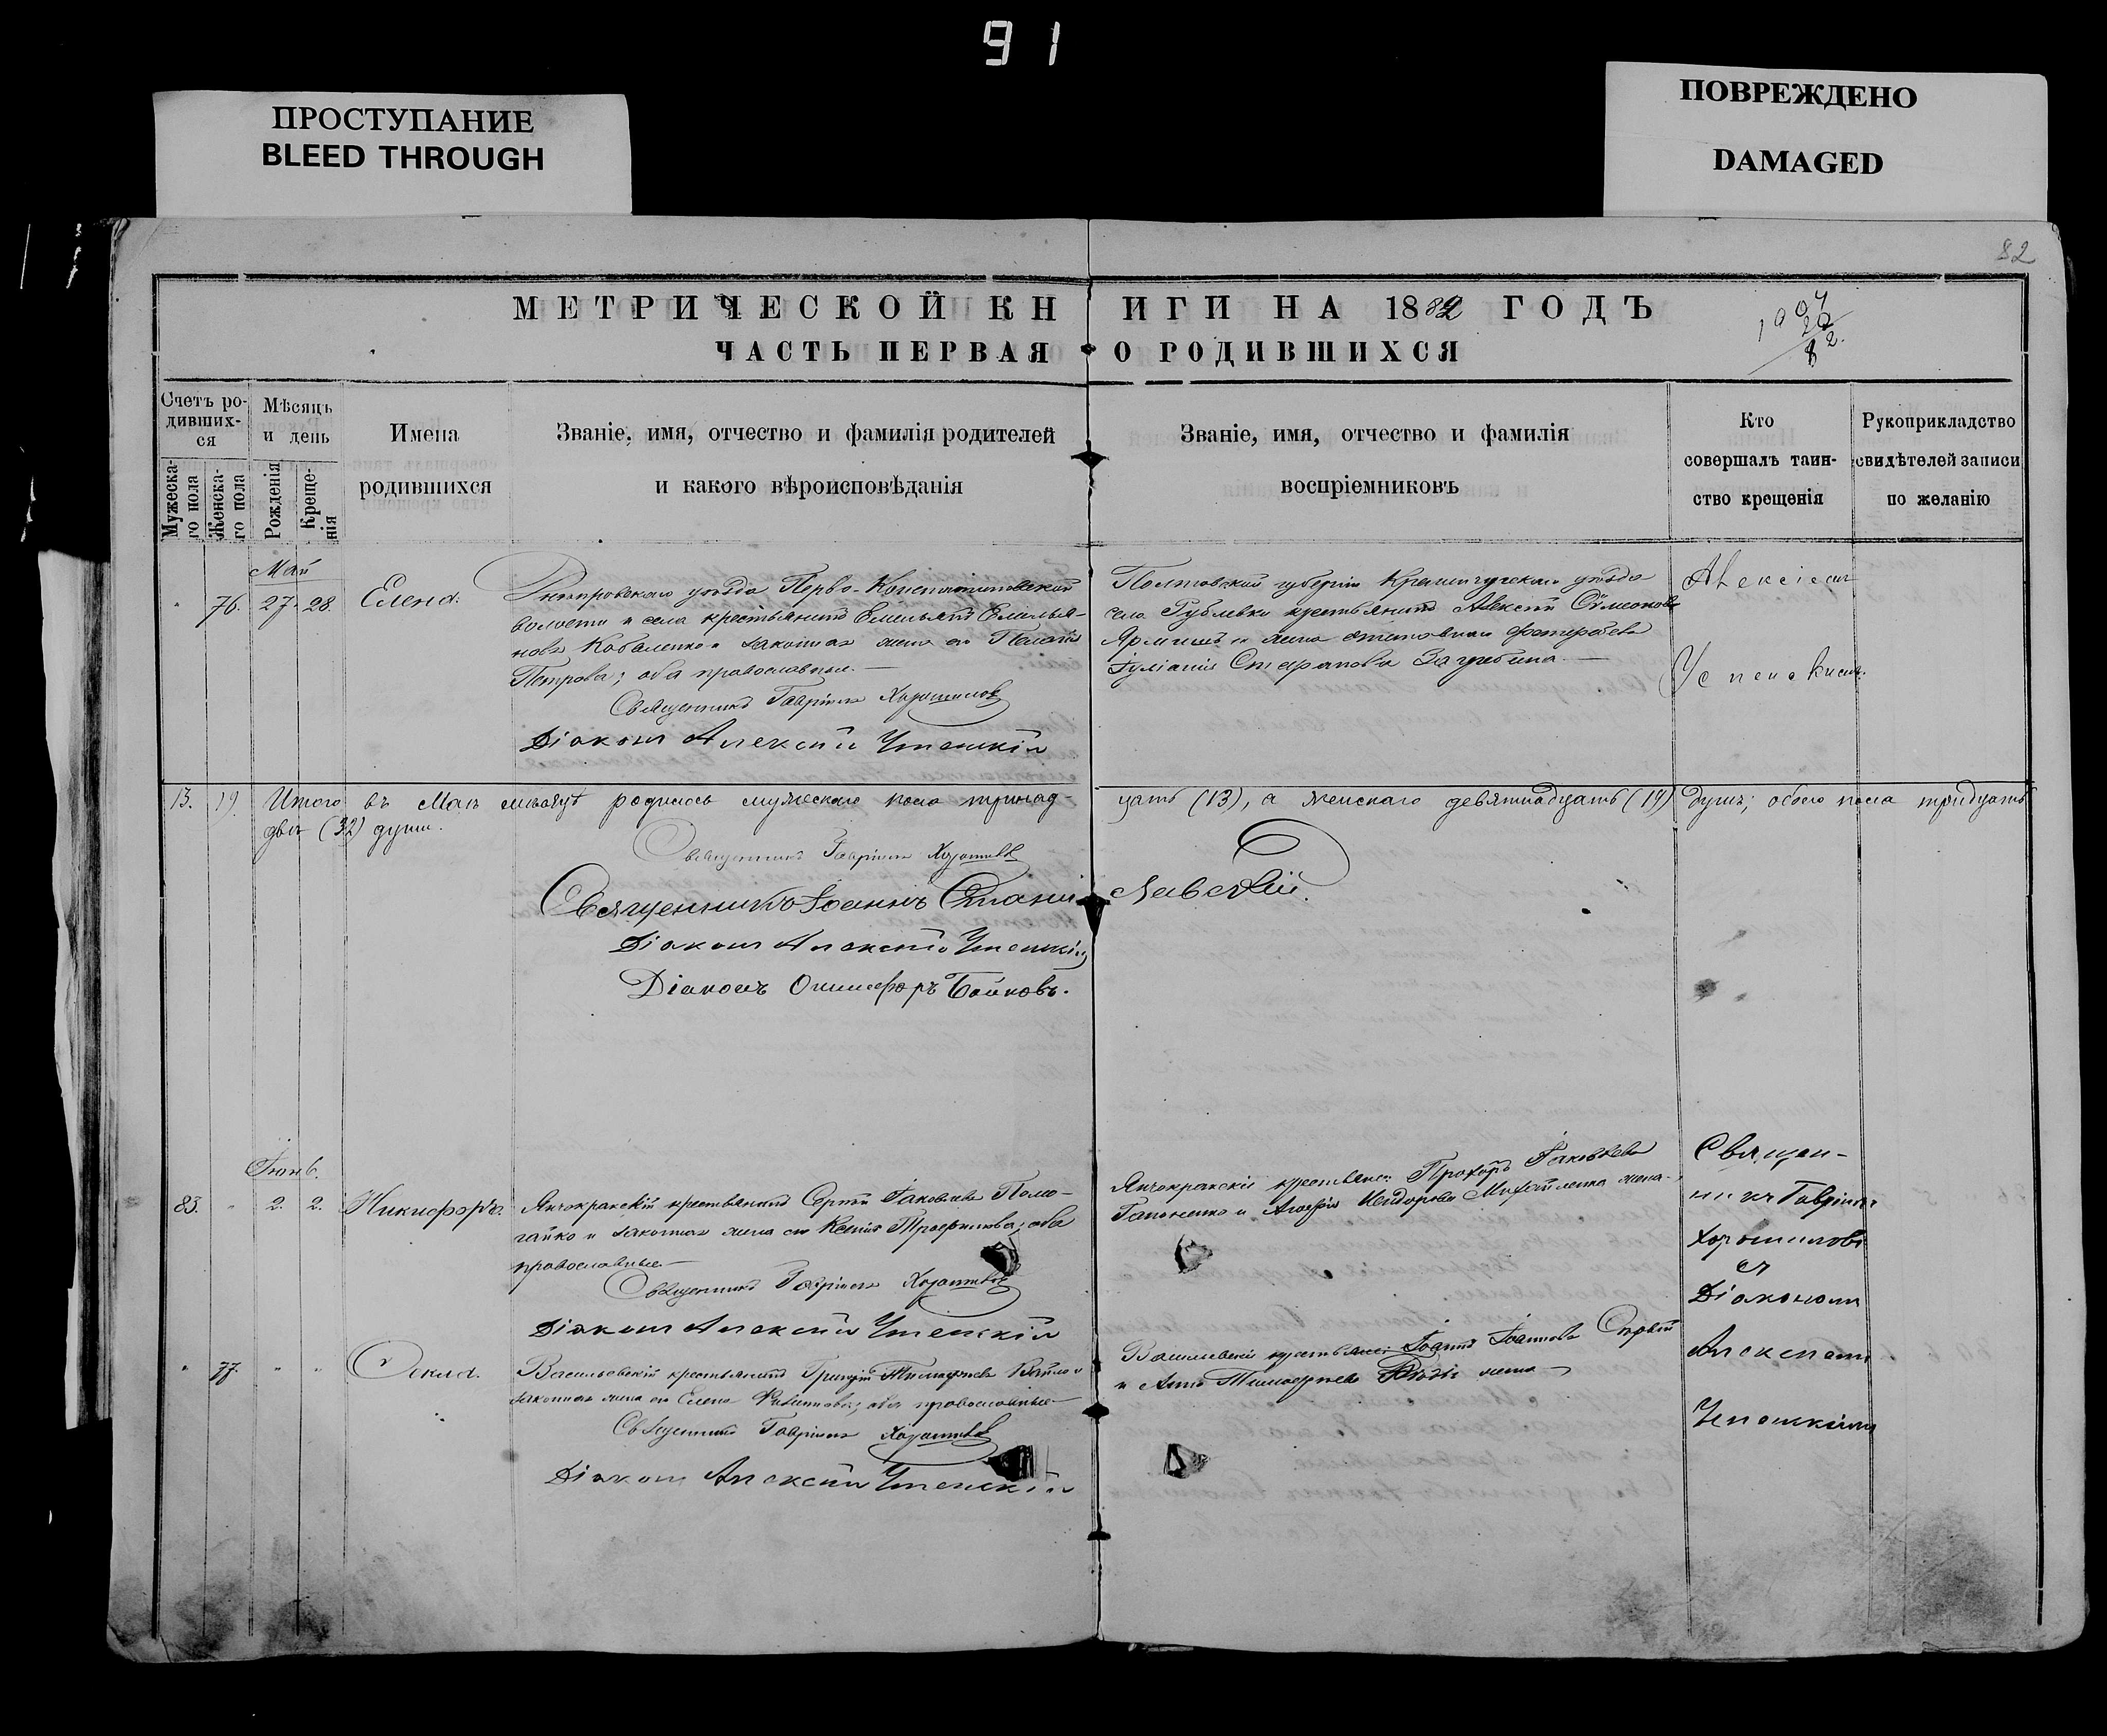 91
ПРОСТУПАНИЕ
BLEED THROUGH
ПОВРЕЖДЕНО
DAMAGED
82
МЕТРИЧЕСКОЙ КНИГИ НА 1882 ГОДЪ
ЧАСТЬ ПЕРВАЯ О РОДИВШИХСЯ
Счетъ ро-
дивших-
ся
Мужеска-
го пола
Женска-
го пола
Мѣсяцъ
и день
Рожденія
Креще-
нія
Имена
родившихся
Званіе, имя, отчество и фамилія родителей
и какого вѣроисповѣданія
Званіе, имя, отчество и фамилія
воспріемниковъ
Кто
совершалъ таин-
ство крещенія
Рукоприкладство
свидѣтелей записи
по желанію
Май
76. 27. 28. Елена.
Днѣпровскаго уѣзда Перво-Константиновской
волости и села крестьянинъ Емельянъ Емелья-
новъ Коваленко и законная жена его Пелагія
Петрова; оба православные.
Священникъ Гавріилъ Хорошиловъ
Діаконъ Алексій Успенскій
Полтавской губерніи Кременчугскаго уѣзда
села крестьянинъ Алексѣй Сѵмеоновъ
и жена
Іуліанія Стефанова
Алексіемъ
Успенскимъ.
13. 19. Итого въ Маѣ мѣсяцѣ родилось мужескаго пола тринад-
цать (13), а женскаго девятнадцать (19) душъ; обоего пола тридцать
двѣ (32) души.
Священникъ Гавріилъ Хорошиловъ
Священникъ Іоаннъ Станиславскій.
Діаконъ Алексій Успенскій
Діаконъ Онисифоръ Бойковъ.
Іюнь.
83. " 2. 2. Никифоръ.
Янчокракскій крестьянинъ Сергѣй Іаковлевъ Поло-
гайко и законная жена его Ксенія Трофимова; оба
православные.
Священникъ Гавріилъ Хорошиловъ
Діаконъ Алексій Успенскій
Янчокракскіе крестьяне: Прохоръ Іаковлевъ
Гапоненко и Исидорова жена
Священ-
никъ Гавріилъ
Хорошиловъ
съ
Діакономъ
Алексіемъ
Успенскимъ
" 77. " " Ѳекла.
Васильевскій крестьянинъ Григорій Тимофеевъ и
законная жена его Елена; оба православные
Священникъ Гавріилъ Хорошиловъ
Діаконъ Алексій Успенскій
Васильевскіе крестьяне: Іоаннъ Іоанновъ
и Анна Тимофеева жена